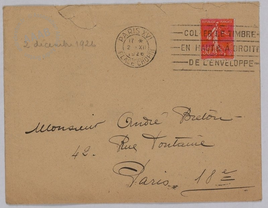 2 décembre 1922
PARIS XVI
COLLER LE TIMBRE
EN HAUT À DROITE
DE L'ENVELOPPE
Monsieur André Breton
42. Rue Fontaine
Paris. 18e